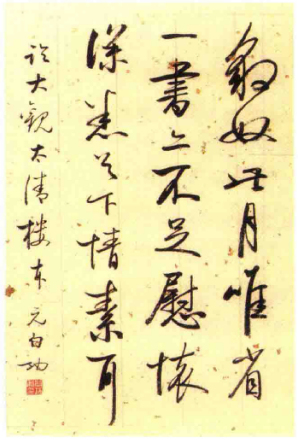 豹奴此月唯省
一書亦不足慰懷
深悉足下情素耳
臨大觀太清樓本 元白功